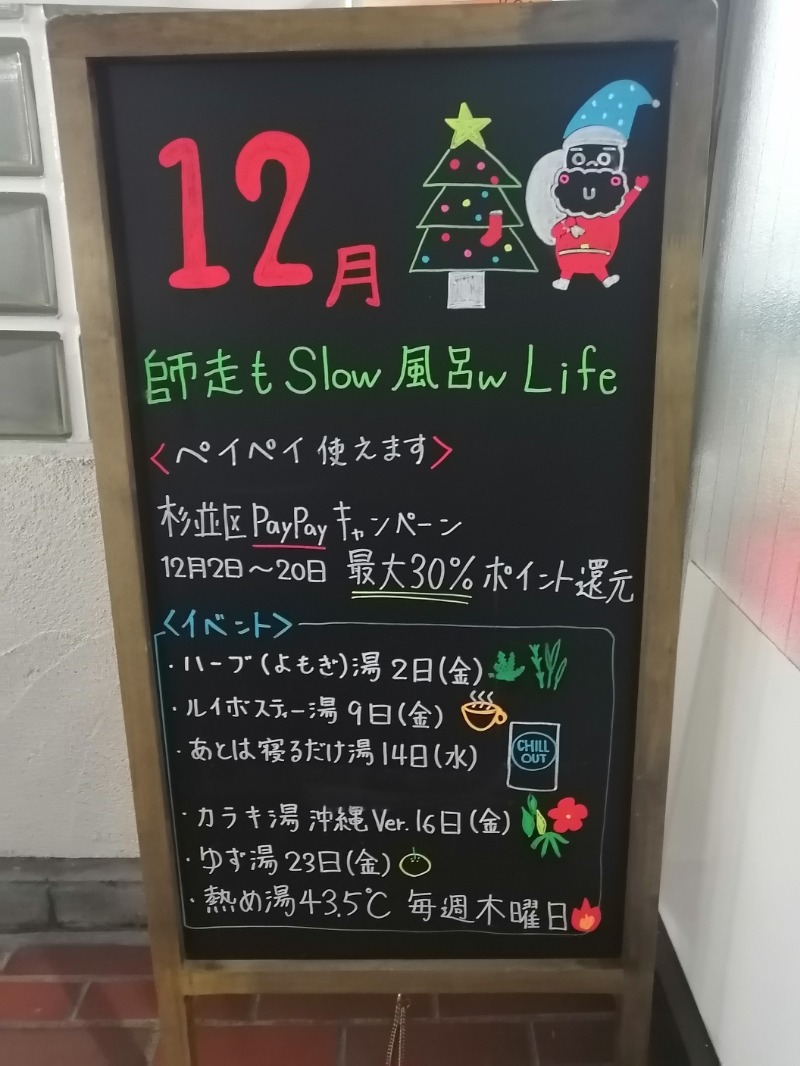 12月
師走も Slow 風呂w Life
<ペイペイ使えます>
杉並区 PayPay キャンペーン
12月2日～20日 最大30% ポイント還元
<イベント>
・ハーブ(よもぎ)湯 2日(金)
・ルイボスティー湯 9日(金)
・あとは寝るだけ湯 14日(水)
CHILL
OUT
・カラキ湯 沖縄 Ver. 16日(金)
・ゆず湯 23日(金)
・熱め湯 43.5℃ 毎週木曜日